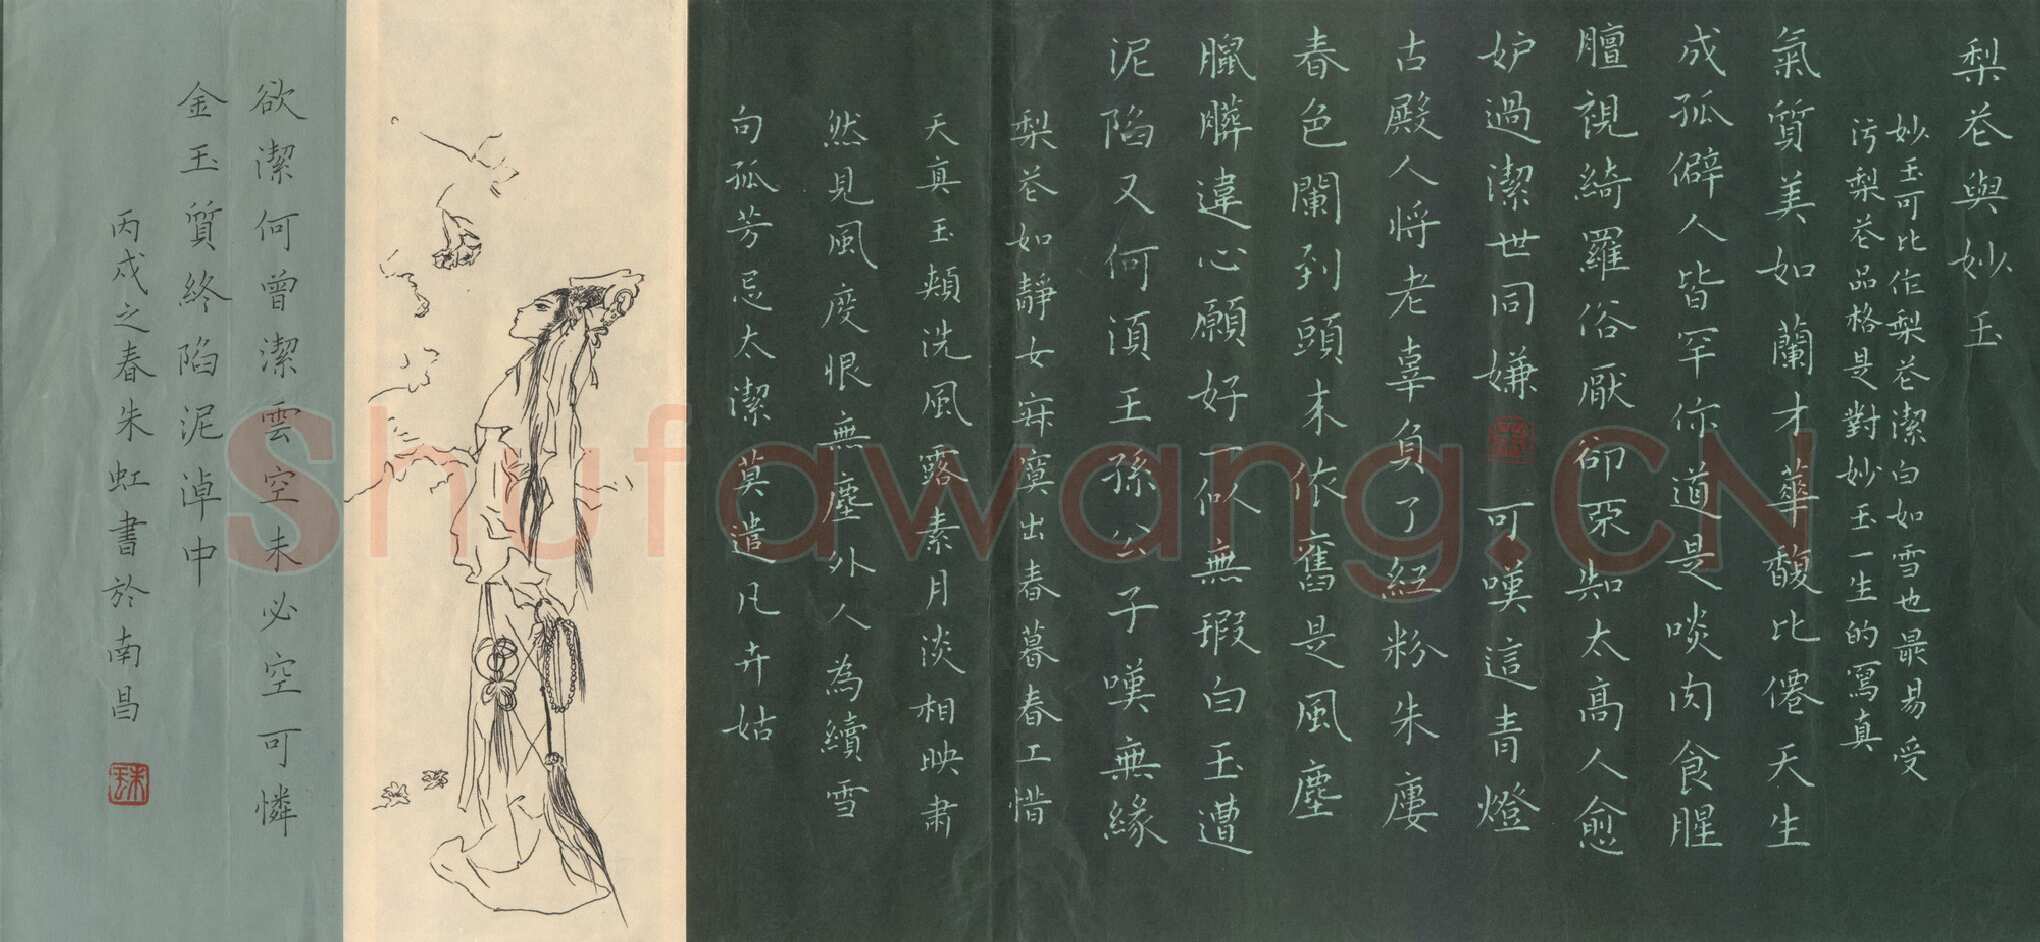 梨花與妙玉
妙玉可比作梨花潔白如雪也最易受
污梨花品格是對妙玉一生的寫真
氣質美如蘭才華馥比僊天生
成孤僻人皆罕你道是啖肉食腥
膻視綺羅俗厭卻不知太高人愈
妒過潔世同嫌 可嘆這青燈
古殿人將老辜負了紅粉朱廔
春色闌到頭來依舊是風塵
臘髒違心願好一似無瑕白玉遭
泥陷又何須王孫公子嘆無緣
梨花如靜女寂寞出春暮春工惜
天真玉頰洗風露素月淡相映肅
然見風度恨無塵外人為續雪
句孤芳忌太潔莫遣凡卉妬
欲潔何曾潔雲空未必空可憐
金玉質終陷泥淖中
丙戌之春朱虹書於南昌
Shufawang.CN